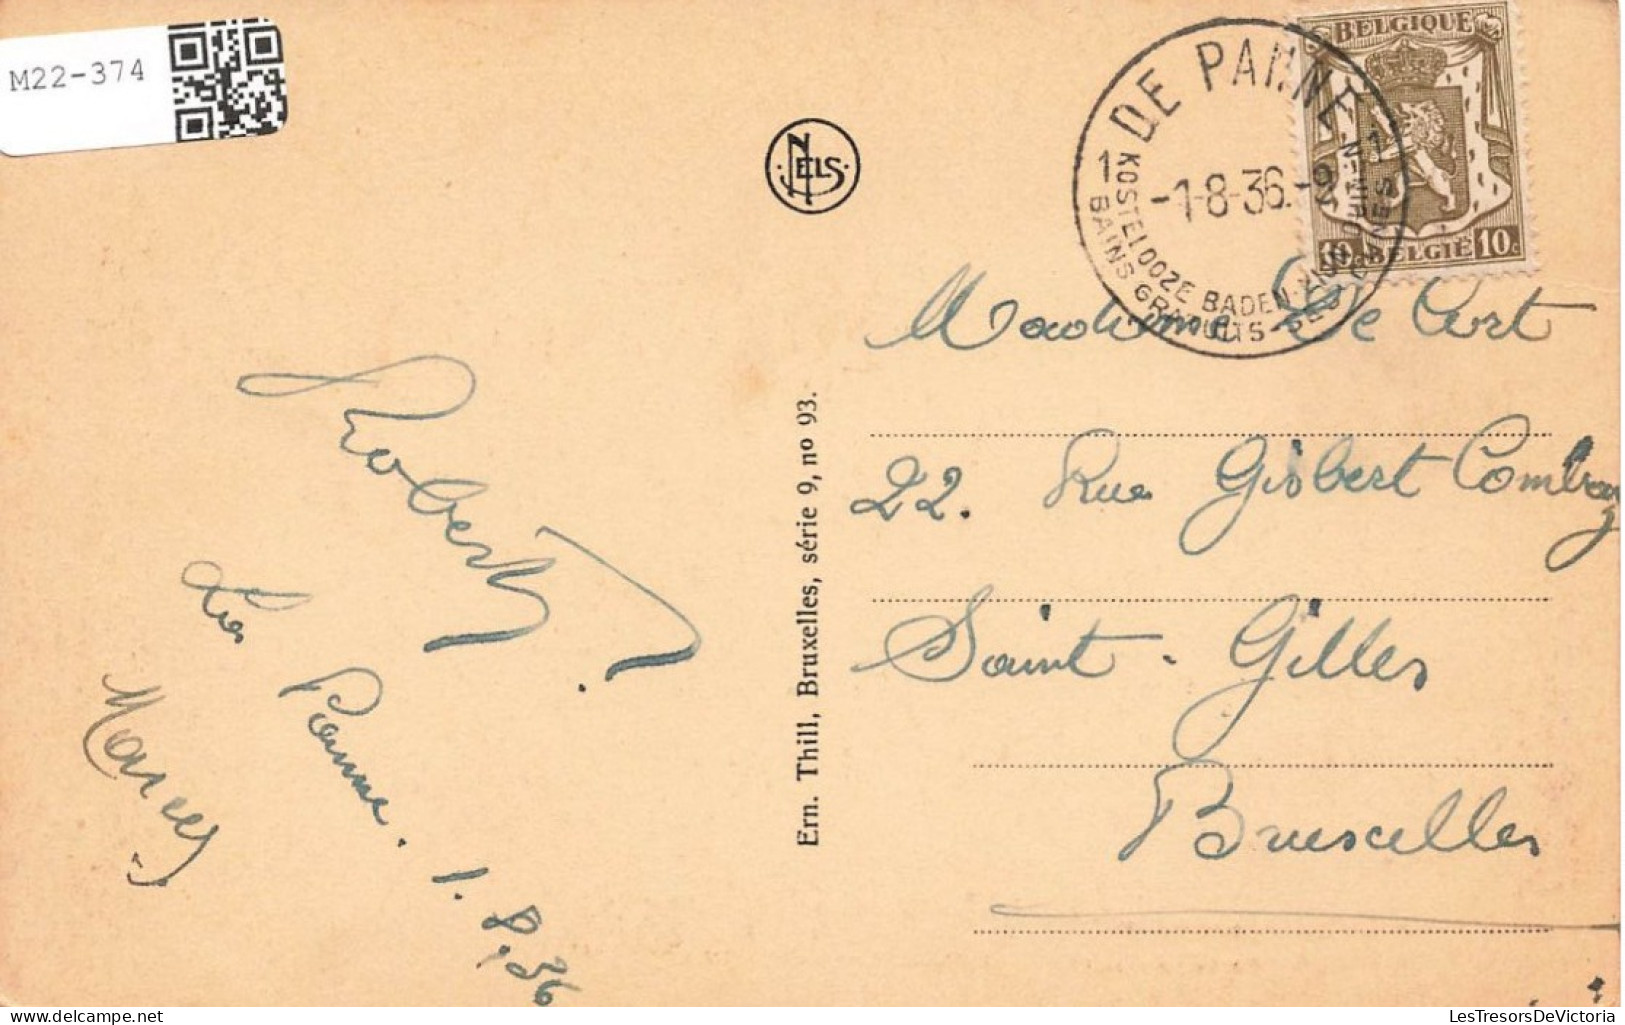 M22-374
NELS
BELGIQUE
10c BELGIË 10c
DE PANNE
1 -1-8-36.-9 1
KOSTELOOZE BADEN
BAINS GRATUITS
Madame De Cort
22. Rue Gisbert Combaz
Saint-Gilles
Bruxelles
Ern. Thill, Bruxelles, série 9, no 93.
Robert
La Panne. 1.8.36
LesTresorsDeVictoria